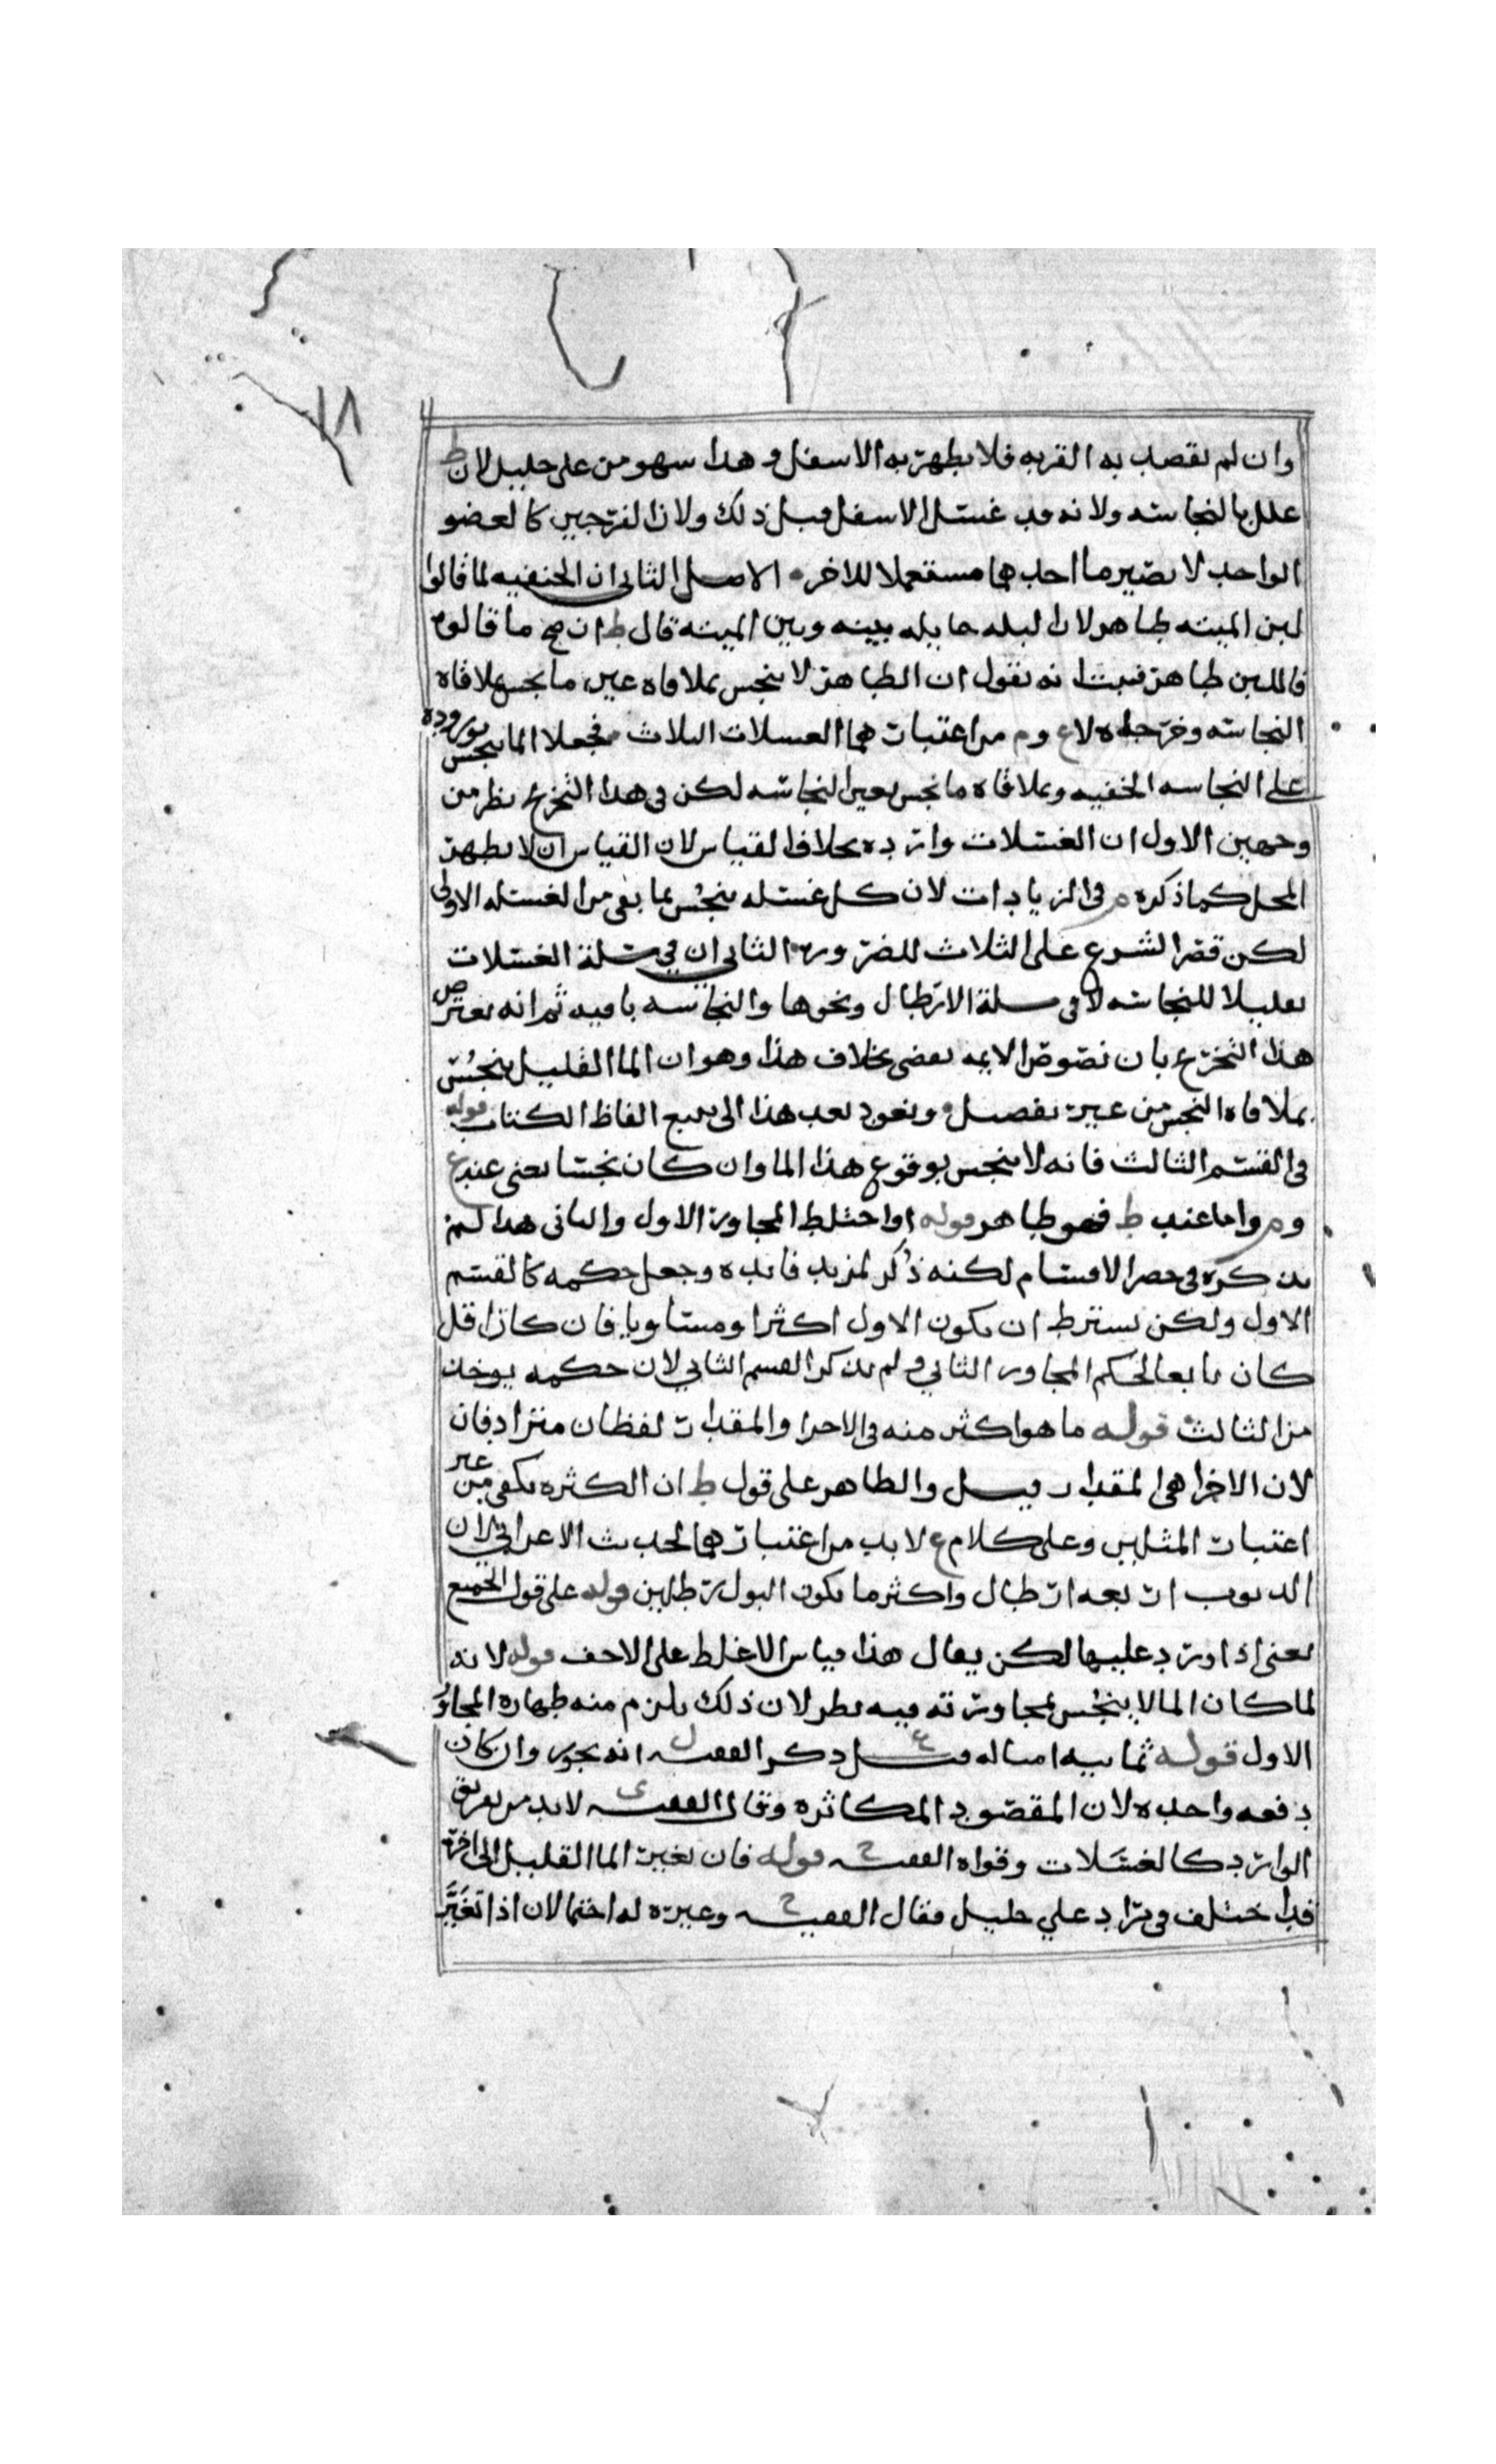 ١٨
وان لم يقصد به القربه فلا يطهر به الاسفل وهذا سهو من علي خليل لان ط
علل بالنجاسه ولانه قد غسل الاسفل قبل ذلك ولان الفرجين كالعضو
الواحد لا يصير ما احدهما مستعملا للاخر الاصل الثاني ان الحنفيه لما قالوا
لبن الميته طاهر لان لبله حايله بينه وبين الميته قال ط ان صح ما قالوه
فاللبن طاهر فثبت انه نقول ان الطاهر لا ينجس بملاقاه عين ما نجس بملاقاه
النجاسه وخرجاه لا ع وم من اعتبارهما الغسلات الثلاث فجعلا الما ينجس بوروده
على النجاسه الخفيه وبملاقاه ما نجس بعين النجاسه لكن في هذا التخرج نظر من
وجهين الاول ان الغسلات وارده بخلاف القياس لان القياس ان لا يطهر
المحل كما ذكره م في الزيادات لان كل غسله ينجس بما بقي من الغسله الاولى
لكن قصر الشرع على الثلاث للضروره الثاني ان في مسلة الغسلات
تقليلا للنجاسه لا في مسلة الارطال ونحوها والنجاسه باقيه ثم انه يعترض
هذا التخرج بان نصوص الايمه تقضي بخلاف هذا وهو ان الما القليل ينجس
بملاقاه النجس من غير تفصيل ونعود بعد هذا الى تتبع الفاظ الكتاب قوله
في القسم الثالث فانه لا ينجس بوقوع هذا الما وان كان نجسا يعني عند ع
وم واما عند ط فهو طاهر قوله او اختلط المجاور الاول والثاني هذا لم
يذكره في حصر الاقسام لكنه ذكر لمزيد فائده وجعل حكمه كالقسم
الاول ولكن يشترط ان يكون الاول اكثر او مساويا فان كان اقل
كان تابعا لحكم المجاور الثاني ولم يذكر القسم الثاني لان حكمه يوخذ
من الثالث قوله ما هو اكثر منه في الاجزا والمقدار لفظان مترادفان
لان الاجزا هي المقدار وقيل والظاهر على قول ط ان الكثره تكفي من غير
اعتبار المثلين وعلى كلام ع لا بد من اعتبارهما لحديث الاعرابي لان
الذنوب اربعه ارطال واكثر ما يكون البول رطلين قوله على قول الجميع
يعني اذا ورد عليها لكن يقال هذا قياس الاغلظ على الاخف قوله لانه
لما كان الما لا ينجس بمجاورته فيه نظر لان ذلك يلزم منه طهاره المجاور
الاول قوله ثمانيه امثاله قيل ذكر الفقيه ل انه يجوز وان كان
دفعه واحده لان المقصود المكاثره وقال الفقيه ى لا بد من تفريق
الوارد كالغسلات وقواه الفقيه ح قوله فان تغير الما القليل الى اخره
قد اختلف في مراد علي خليل فقال الفقيه ح وغيره له احتمالان اذا تغير